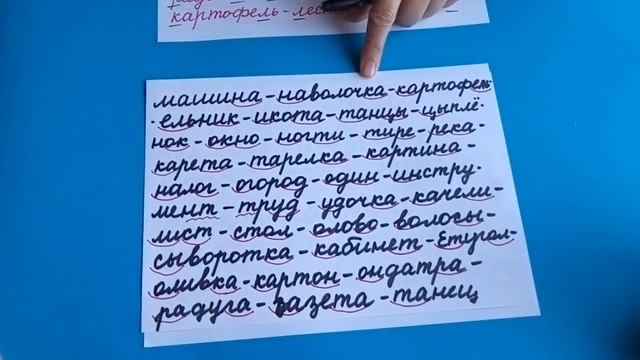 картофель-
машина-наволочка-картофель-
-ельник-икота-танцы-цыплё-
нок-окно-ногти-тире-река-
карета-тарелка-картина-
налог-огород-один-инстру-
мент-труд-удочка-качели-
лист-стол-олово-волосы-
сыворотка-кабинет-
оливка-картон-ондатра-
радуга-газета-танец